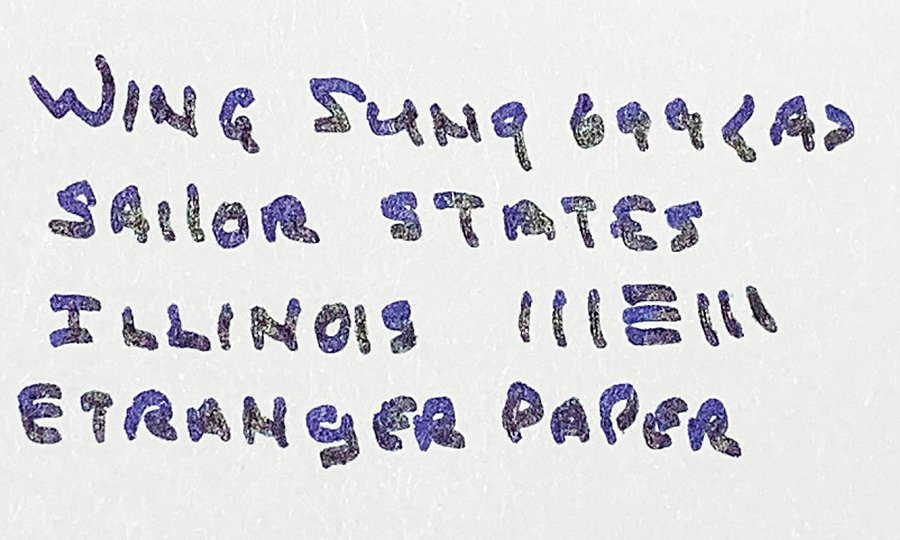 WING SUNG 699 <A>
SAILOR STATES
ILLINOIS
ETRANGER PAPER